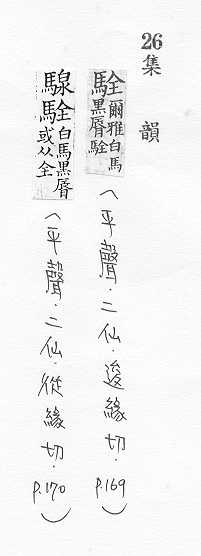 26集韻
駩爾雅白馬黑脣駩（平聲．二仙．逡緣切．p.169）
騡駩白馬黑脣或从全（平聲．二仙．從緣切．p.170）